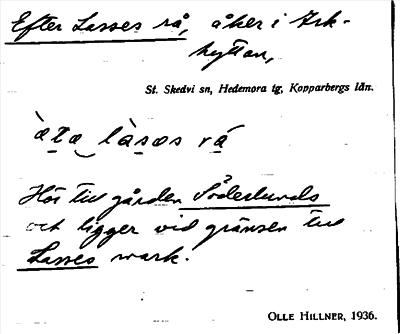 Efter Lasses rå, åker i Ark-
hyttan,
St. Skedvi sn, Hedemora tg, Kopparbergs län.
àta làsəs rá
Hör till gården Söderlunds
och ligger vid gränsen till
Lasses mark.
OLLE HILLNER, 1936.